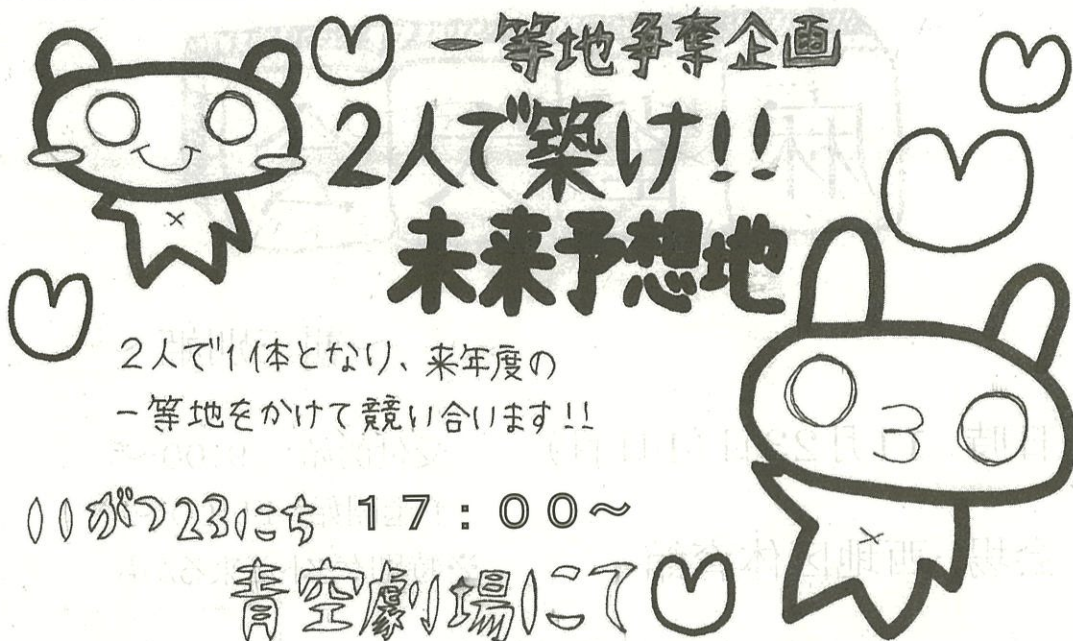 一等地争奪企画
2人で築け!!
未来予想地
2人で1体となり、来年度の
一等地をかけて競い合います!!
11がつ23にち 17:00～
青空劇場にて